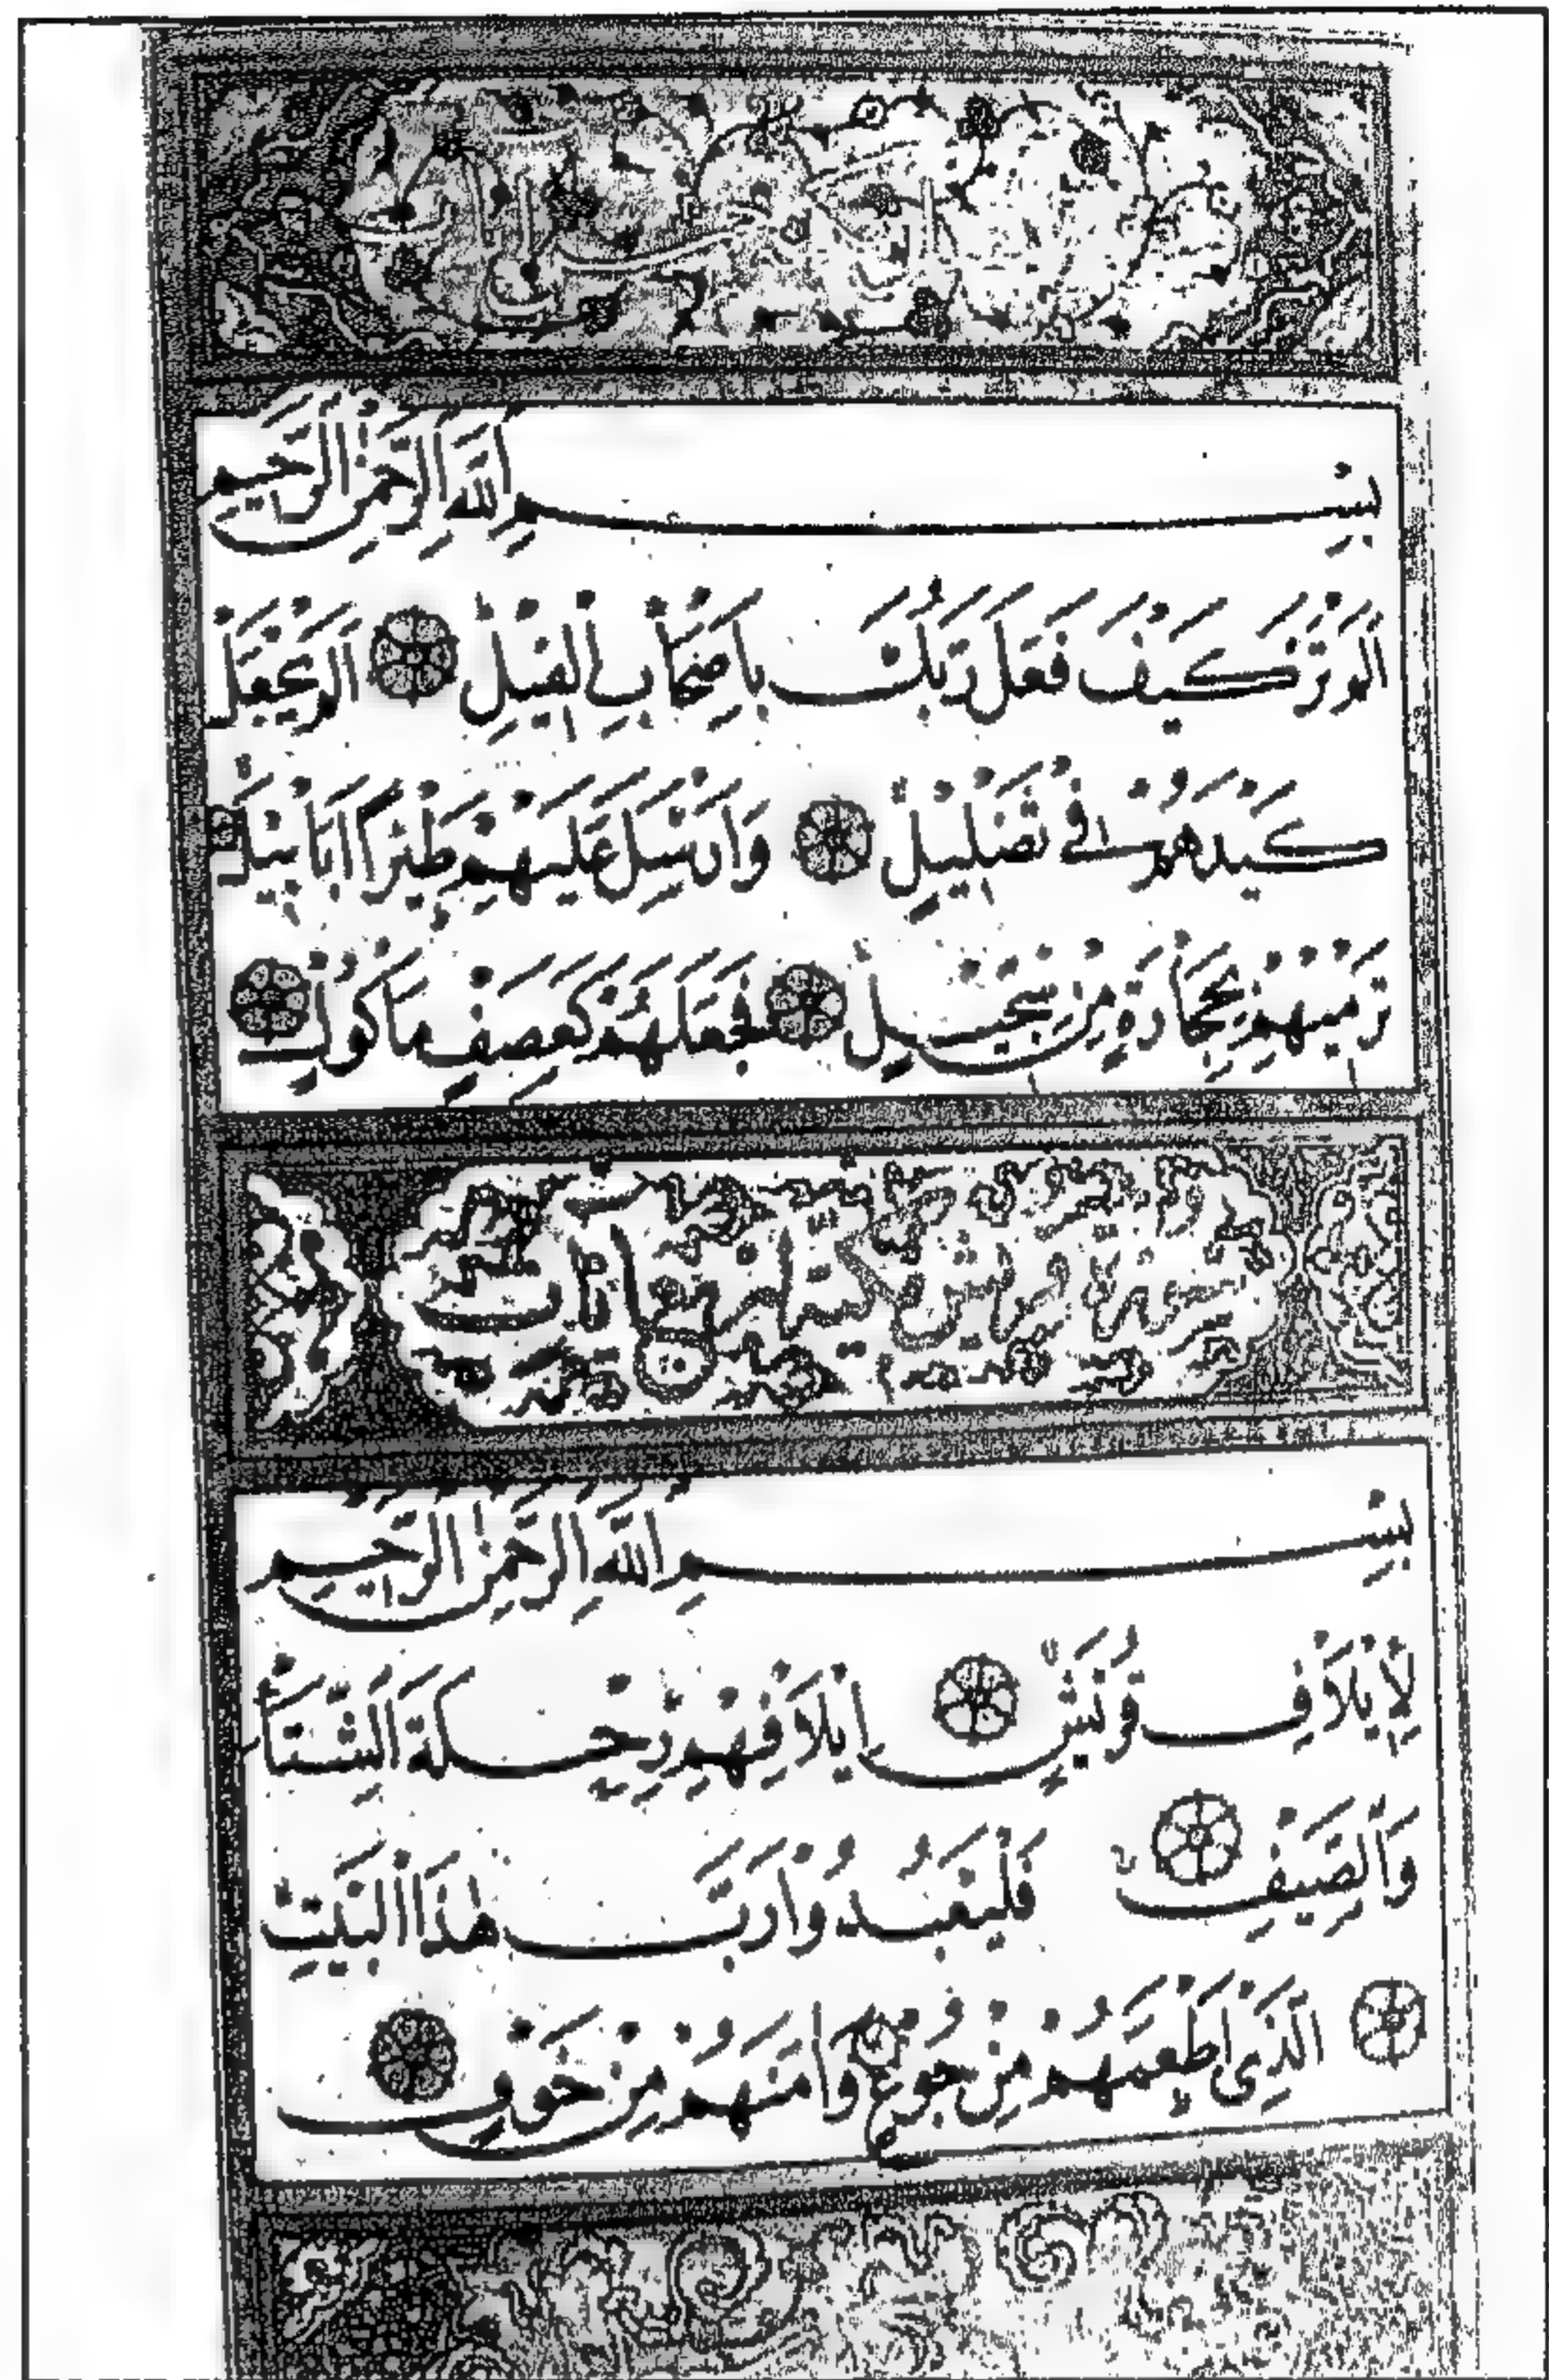 بِسْمِ اللَّهِ الرَّحْمٰنِ الرَّحِيمِ
اَلَمْ تَرَ كَيْفَ فَعَلَ رَبُّكَ بِاَصْحَابِ الْفِيلِ اَلَمْ يَجْعَلْ
كَيْدَهُمْ فِى تَضْلِيلٍ وَاَرْسَلَ عَلَيْهِمْ طَيْرًا اَبَابِيلَ
تَرْمِيهِمْ بِحِجَارَةٍ مِنْ سِجِّيلٍ فَجَعَلَهُمْ كَعَصْفٍ مَاْكُولٍ
سورة قريش
بِسْمِ اللَّهِ الرَّحْمٰنِ الرَّحِيمِ
لِاِيلَافِ قُرَيْشٍ اِيلَافِهِمْ رِحْلَةَ الشِّتَاءِ
وَالصَّيْفِ فَلْيَعْبُدُوا رَبَّ هٰذَا الْبَيْتِ
الَّذِى اَطْعَمَهُمْ مِنْ جُوعٍ وَاٰمَنَهُمْ مِنْ خَوْفٍ